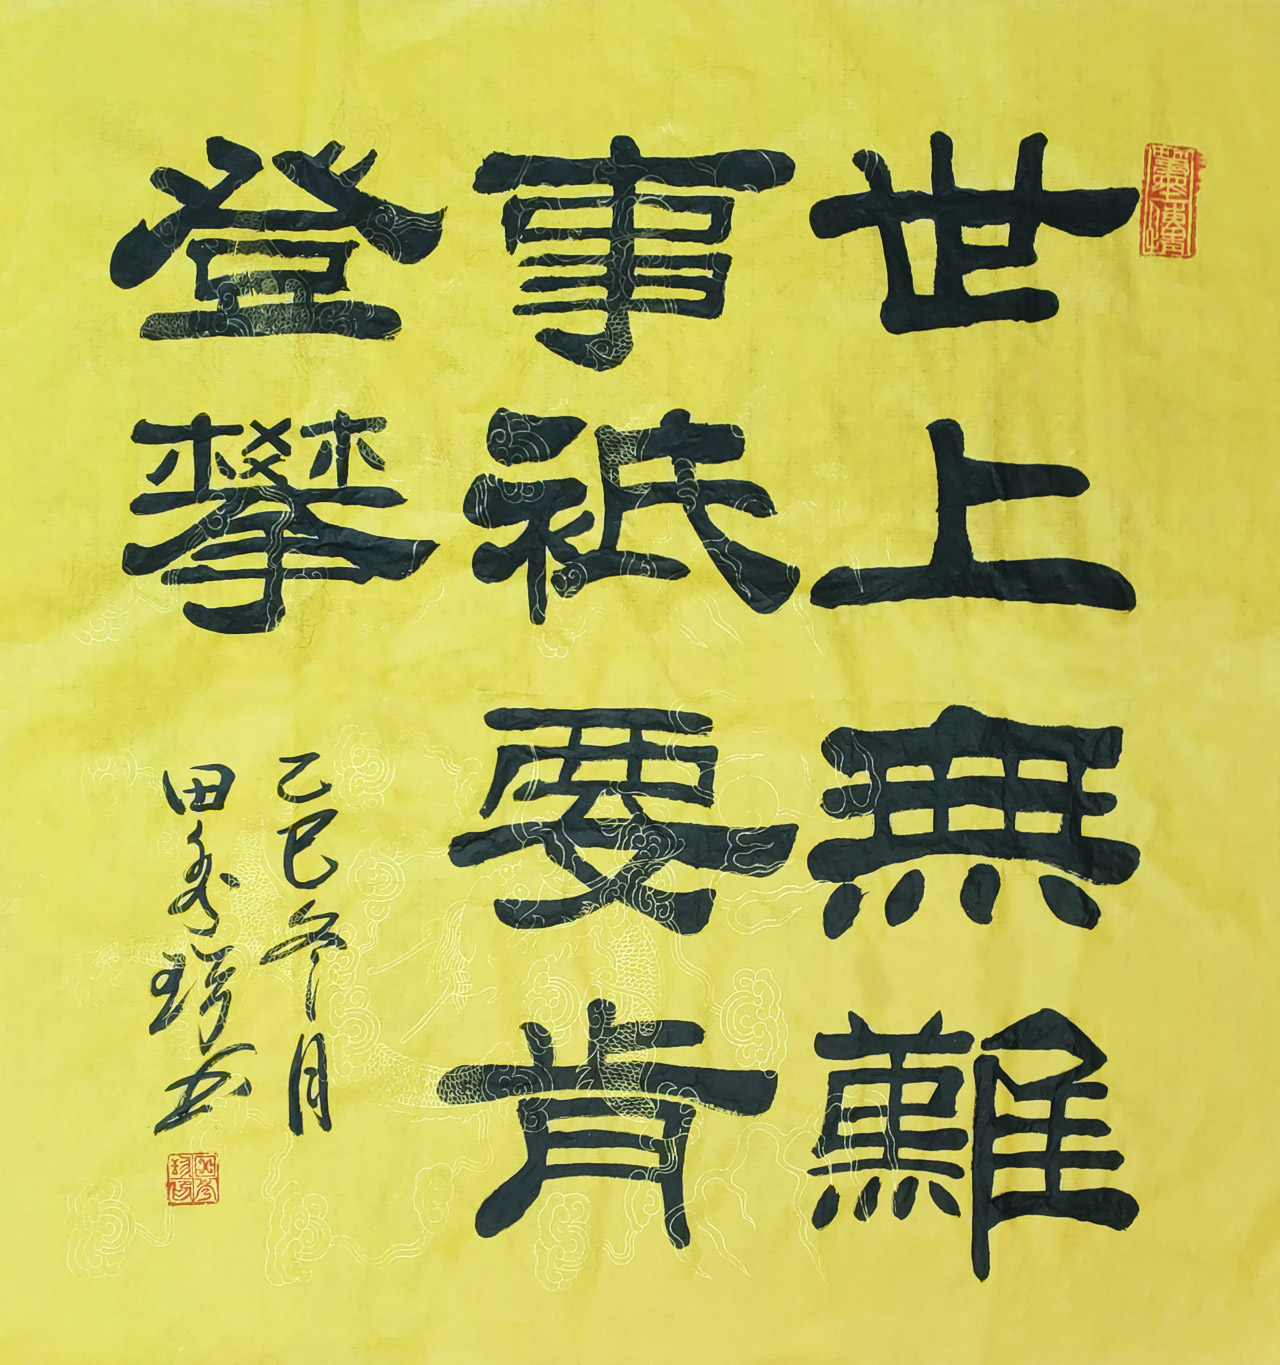 世上無難
事衹要肯
登攀
乙巳冬月
田秀珍书